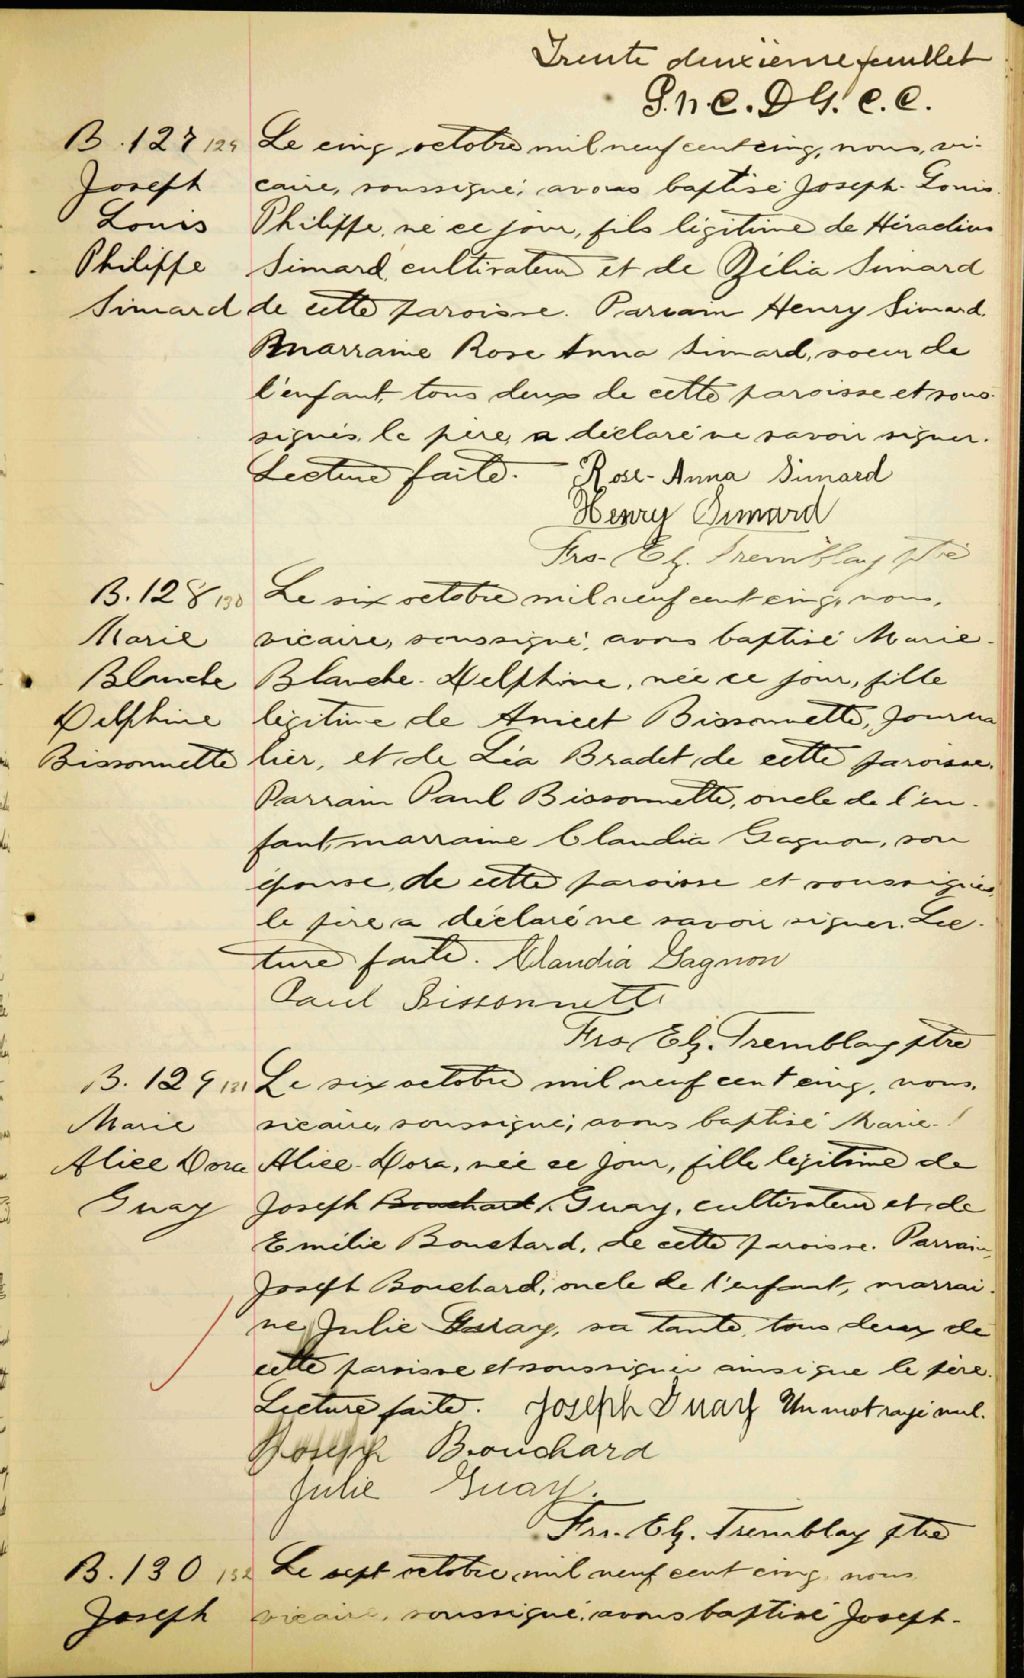 Trente deuxième feuillet
P.n.C.D G. C.C.
B.127 129
Joseph
Louis
Philippe
Simard
Le cinq octobre mil neuf cent cinq, nous, vi-
caire, soussigné, avons baptisé Joseph-Louis
Philippe, né ce jour, fils légitime de Héraclius
Simard, cultivateur et de Zélia Simard
de cette paroisse. Parrain Henry Simard,
marraine Rose Anna Simard, soeur de
l'enfant, tous deux de cette paroisse et sous-
signés, le père, a déclaré ne savoir signer.
Lecture faite. Rose-Anna Simard
Henry Simard
Frs-Elz. Tremblay ptre
B.128 130
Marie
Blanche
Delphine
Bissonnette
Le six octobre mil neuf cent cinq, nous,
vicaire, soussigné, avons baptisé Marie-
Blanche-Delphine, née ce jour, fille
légitime de Anicet Bissonnette, journa
lier, et de Léa Bradet, de cette paroisse.
Parrain Paul Bissonnette, oncle de l'en-
fant, marraine Claudia Gagnon, son
épouse, de cette paroisse et soussignés,
le père a déclaré ne savoir signer. Lec-
ture faite. Claudia Gagnon
Paul Bissonnette
Frs Elz. Tremblay ptre
B. 129 131
Marie
Alice Dora
Guay
Le six octobre mil neuf cent cinq, nous,
vicaire, soussigné, avons baptisé Marie-
Alice-Dora, née ce jour, fille légitime de
Joseph Bouchard Guay, cultivateur et de
Emélie Bouchard, de cette paroisse. Parrain,
Joseph Bouchard, oncle de l'enfant, marrai-
ne Julie Guay, sa tante, tous deux de
cette paroisse et soussignés ainsi que le père.
Lecture faite. Joseph Guay Un mot rayé nul.
Joseph Bouchard
Julie Guay.
Frs. Elz. Tremblay ptre
B.130 132
Joseph
Le sept octobre, mil neuf cent cinq, nous
vicaire, soussigné, avons baptisé Joseph-